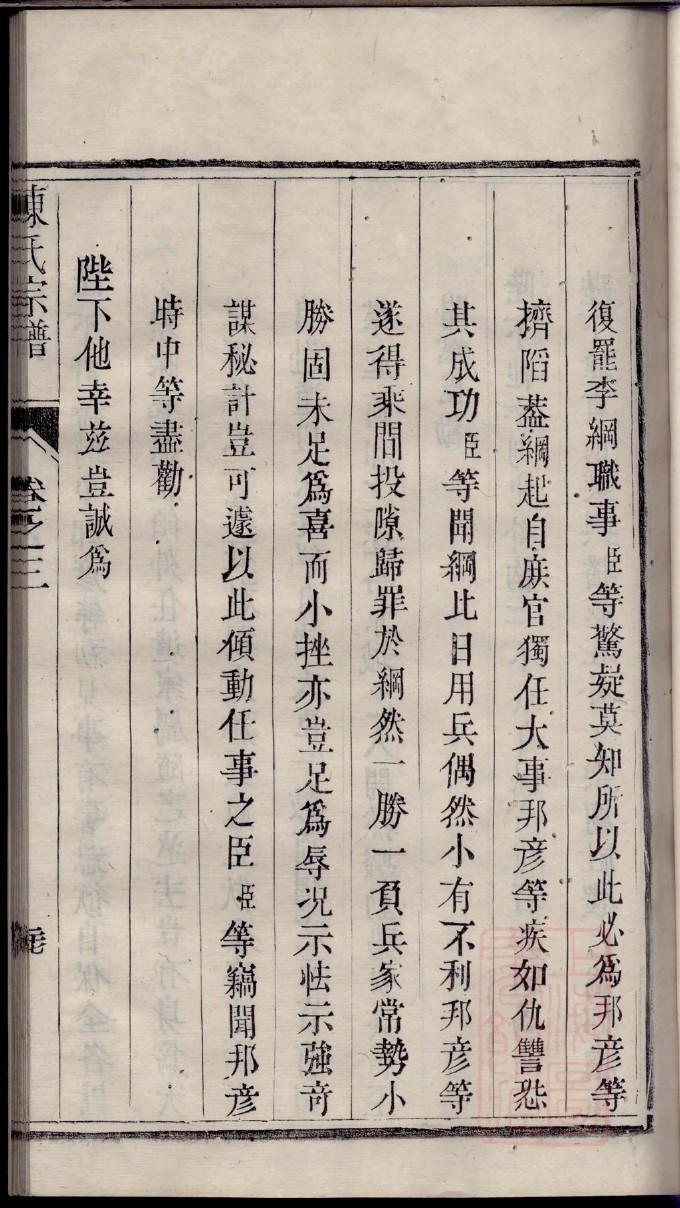 復罷李綱職事臣等驚疑莫知所以此必爲邦彦等
擠陷葢綱起自庶官獨任大事邦彦等疾如仇讐恐
其成功臣等聞綱比日用兵偶然小有不利邦彦等
遂得乘間投隙歸罪於綱然一勝一負兵家常勢小
勝固未足爲喜而小挫亦豈足爲辱况示怯示強竒
謀秘計豈可遽以此傾動任事之臣臣等竊聞邦彦
時中等盡勸
陛下他幸兹豈誠爲
陳氏宗譜 卷之三